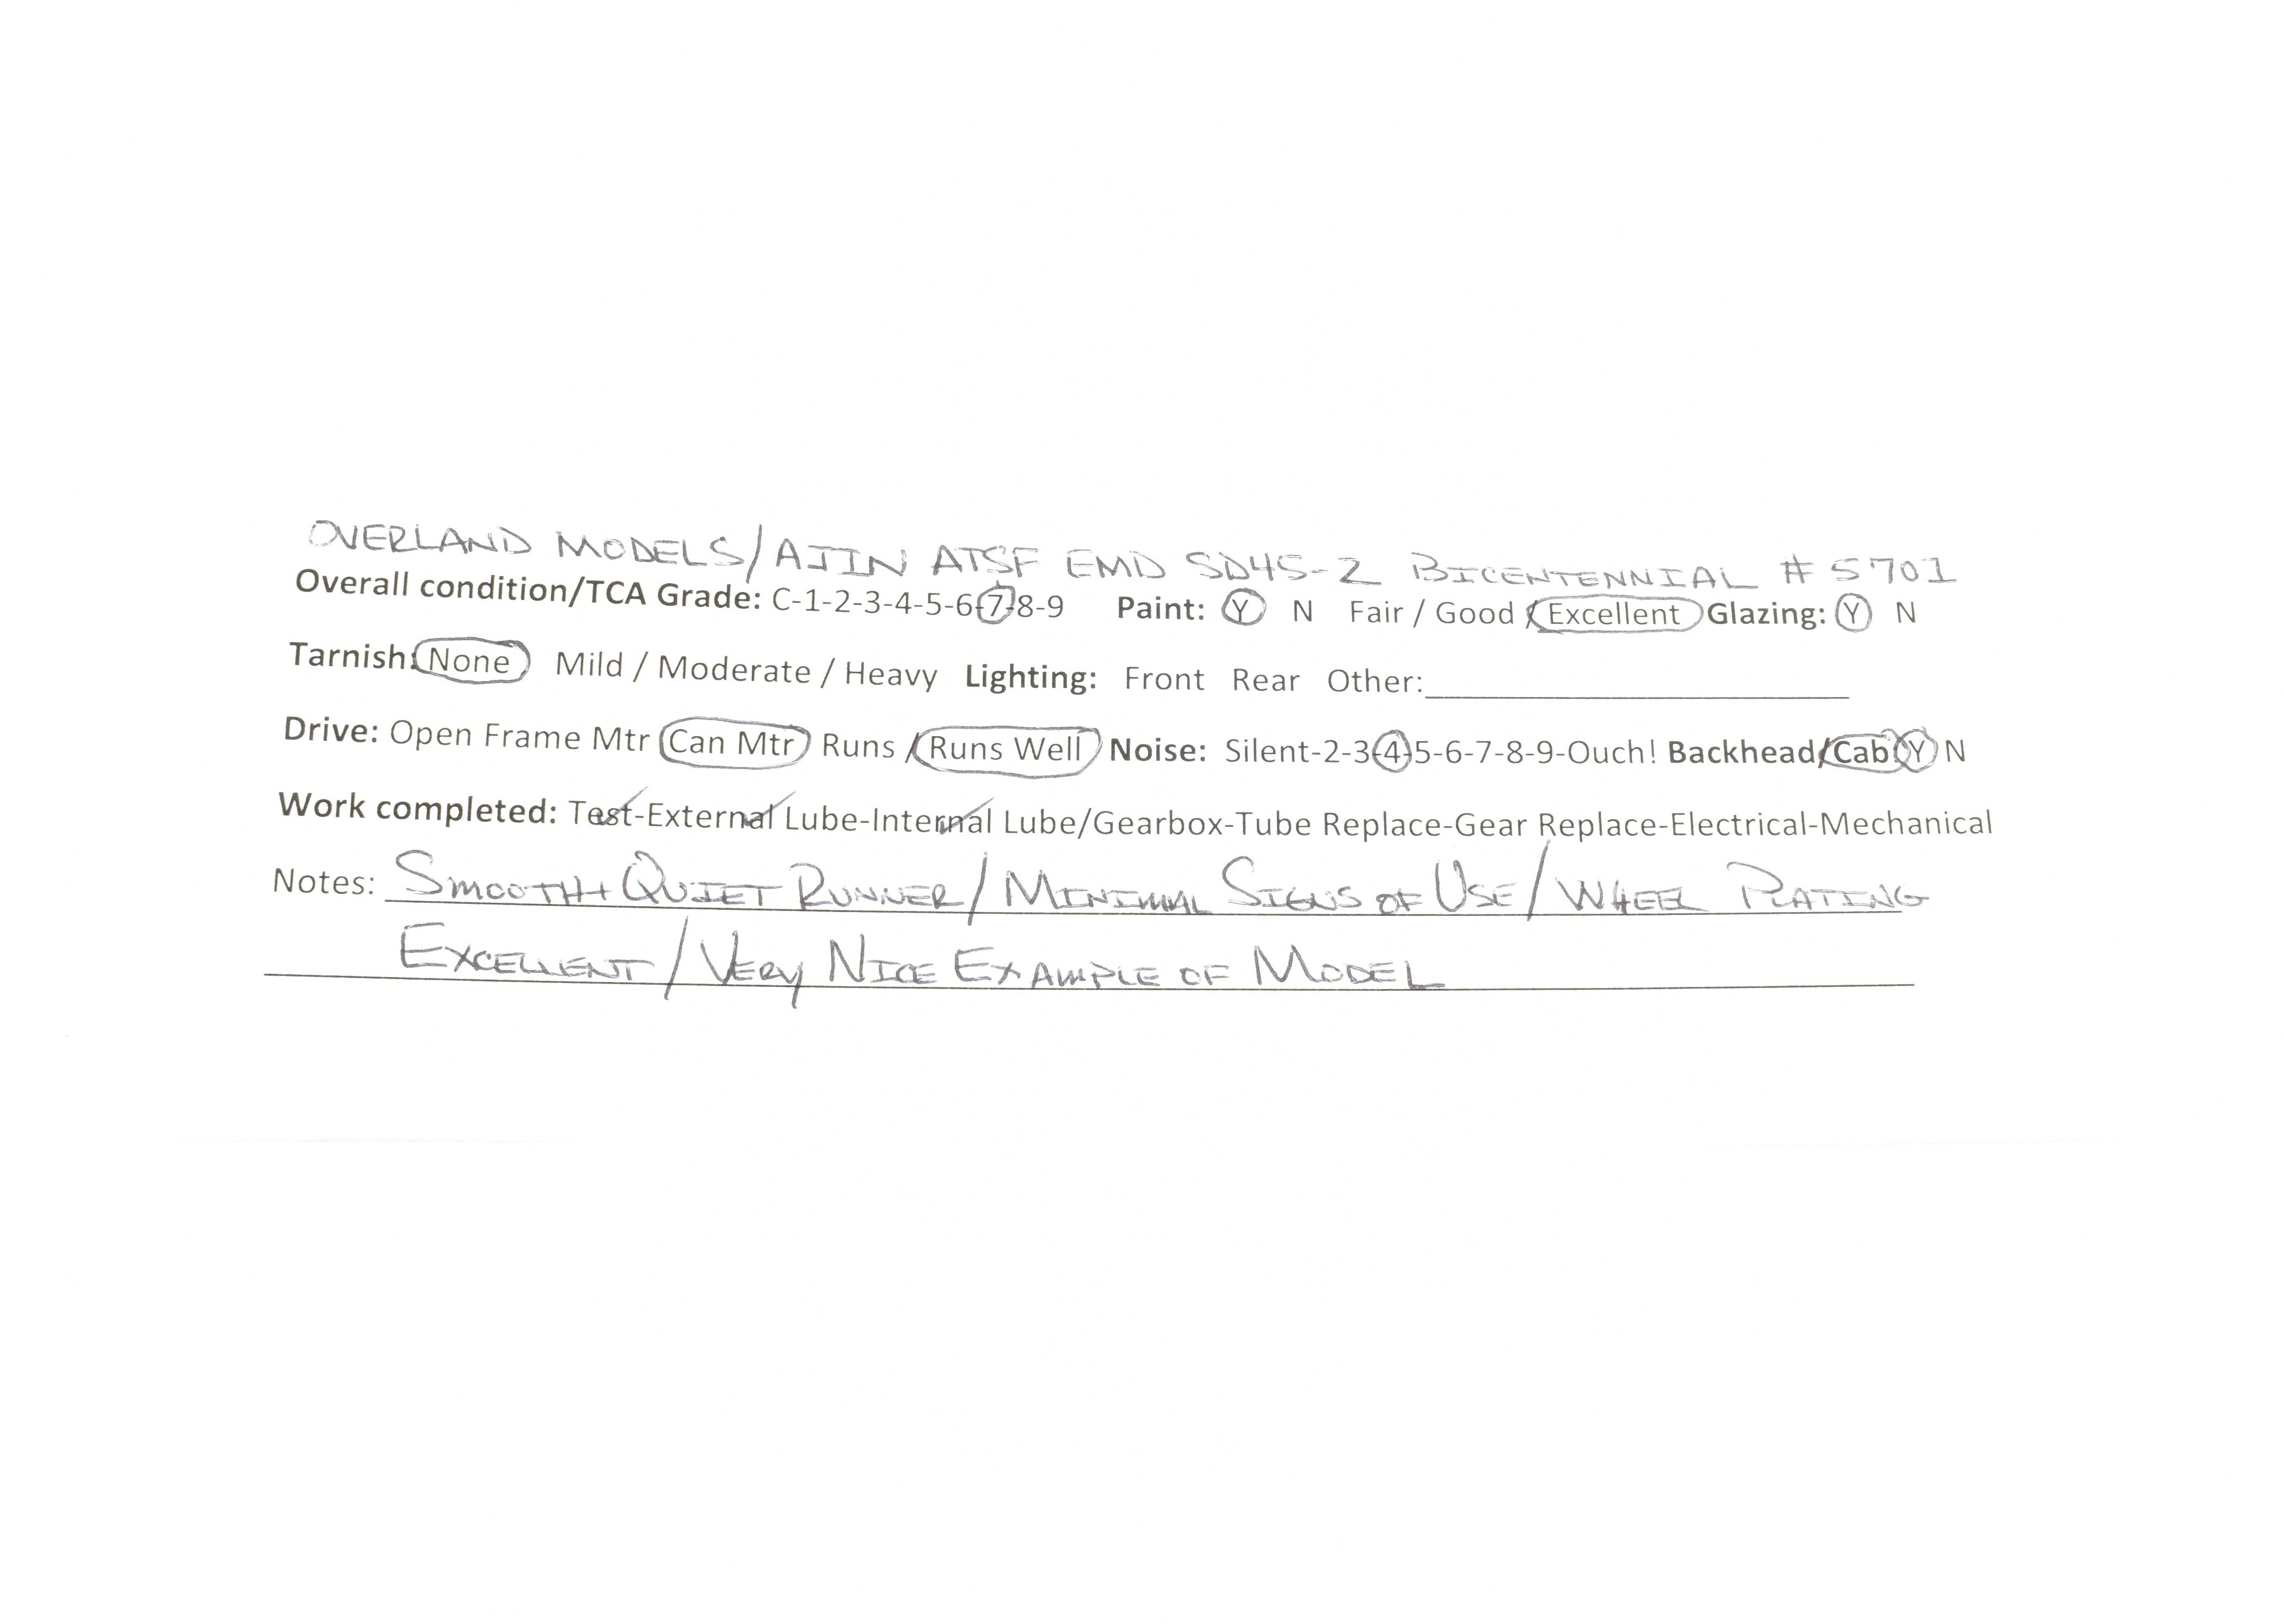 OVERLAND MODELS/AJIN ATSF EMD SD45-2 BICENTENNIAL # 5701
Overall condition/TCA Grade: C-1-2-3-4-5-6-7-8-9 Paint: Y N Fair / Good / Excellent Glazing: Y N
Tarnish: None Mild / Moderate / Heavy Lighting: Front Rear Other:
Drive: Open Frame Mtr Can Mtr Runs / Runs Well Noise: Silent-2-3-4-5-6-7-8-9-Ouch! Backhead/Cab: Y N
Work completed: Test-External Lube-Internal Lube/Gearbox-Tube Replace-Gear Replace-Electrical-Mechanical
Notes: SMOOTH + QUIET RUNNER/MINIMAL SIGNS OF USE/WHEEL PLATING
EXCELLENT/VERY NICE EXAMPLE OF MODEL